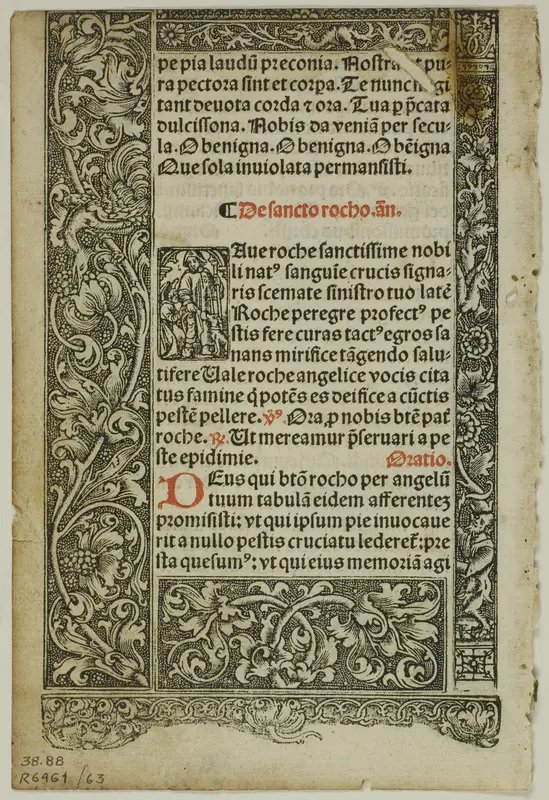 pe pia laudū preconia. Nostra et pu-
ra pectora sint et corpa. Te nunc
tant deuota corda ⁊ ora. Tua ꝑ p̄cata
dulcissona. Nobis da veniā per secu-
la. O benigna. O benigna. O bēigna
Que sola inuiolata permansisti.
¶ De sancto rocho. an̄.
Aue roche sanctissime nobi
li natꝰ sanguīe crucis signa-
ris scemate sinistro tuo latē
Roche peregre profectꝰ pe
stis fere curas tactꝰ egros sa
nans mirifice tāgendo salu-
tifere Uale roche angelice vocis cita
tus famine q̇ potēs es deifice a cūctis
pestē pellere. ꝟꝰ. Ora ꝓ nobis btē pat̄
roche. ℟. Ut mereamur p̄seruari a pe
ste epidimie. Oratio.
DEus qui btō rocho per angelū
tuum tabulā eidem afferenteꝫ
promisisti: vt qui ipsum pie inuocaue
rit a nullo pestis cruciatu lederet̄: pre
sta quesumꝰ: vt qui eius memoriā agi
38.88
R6461/63